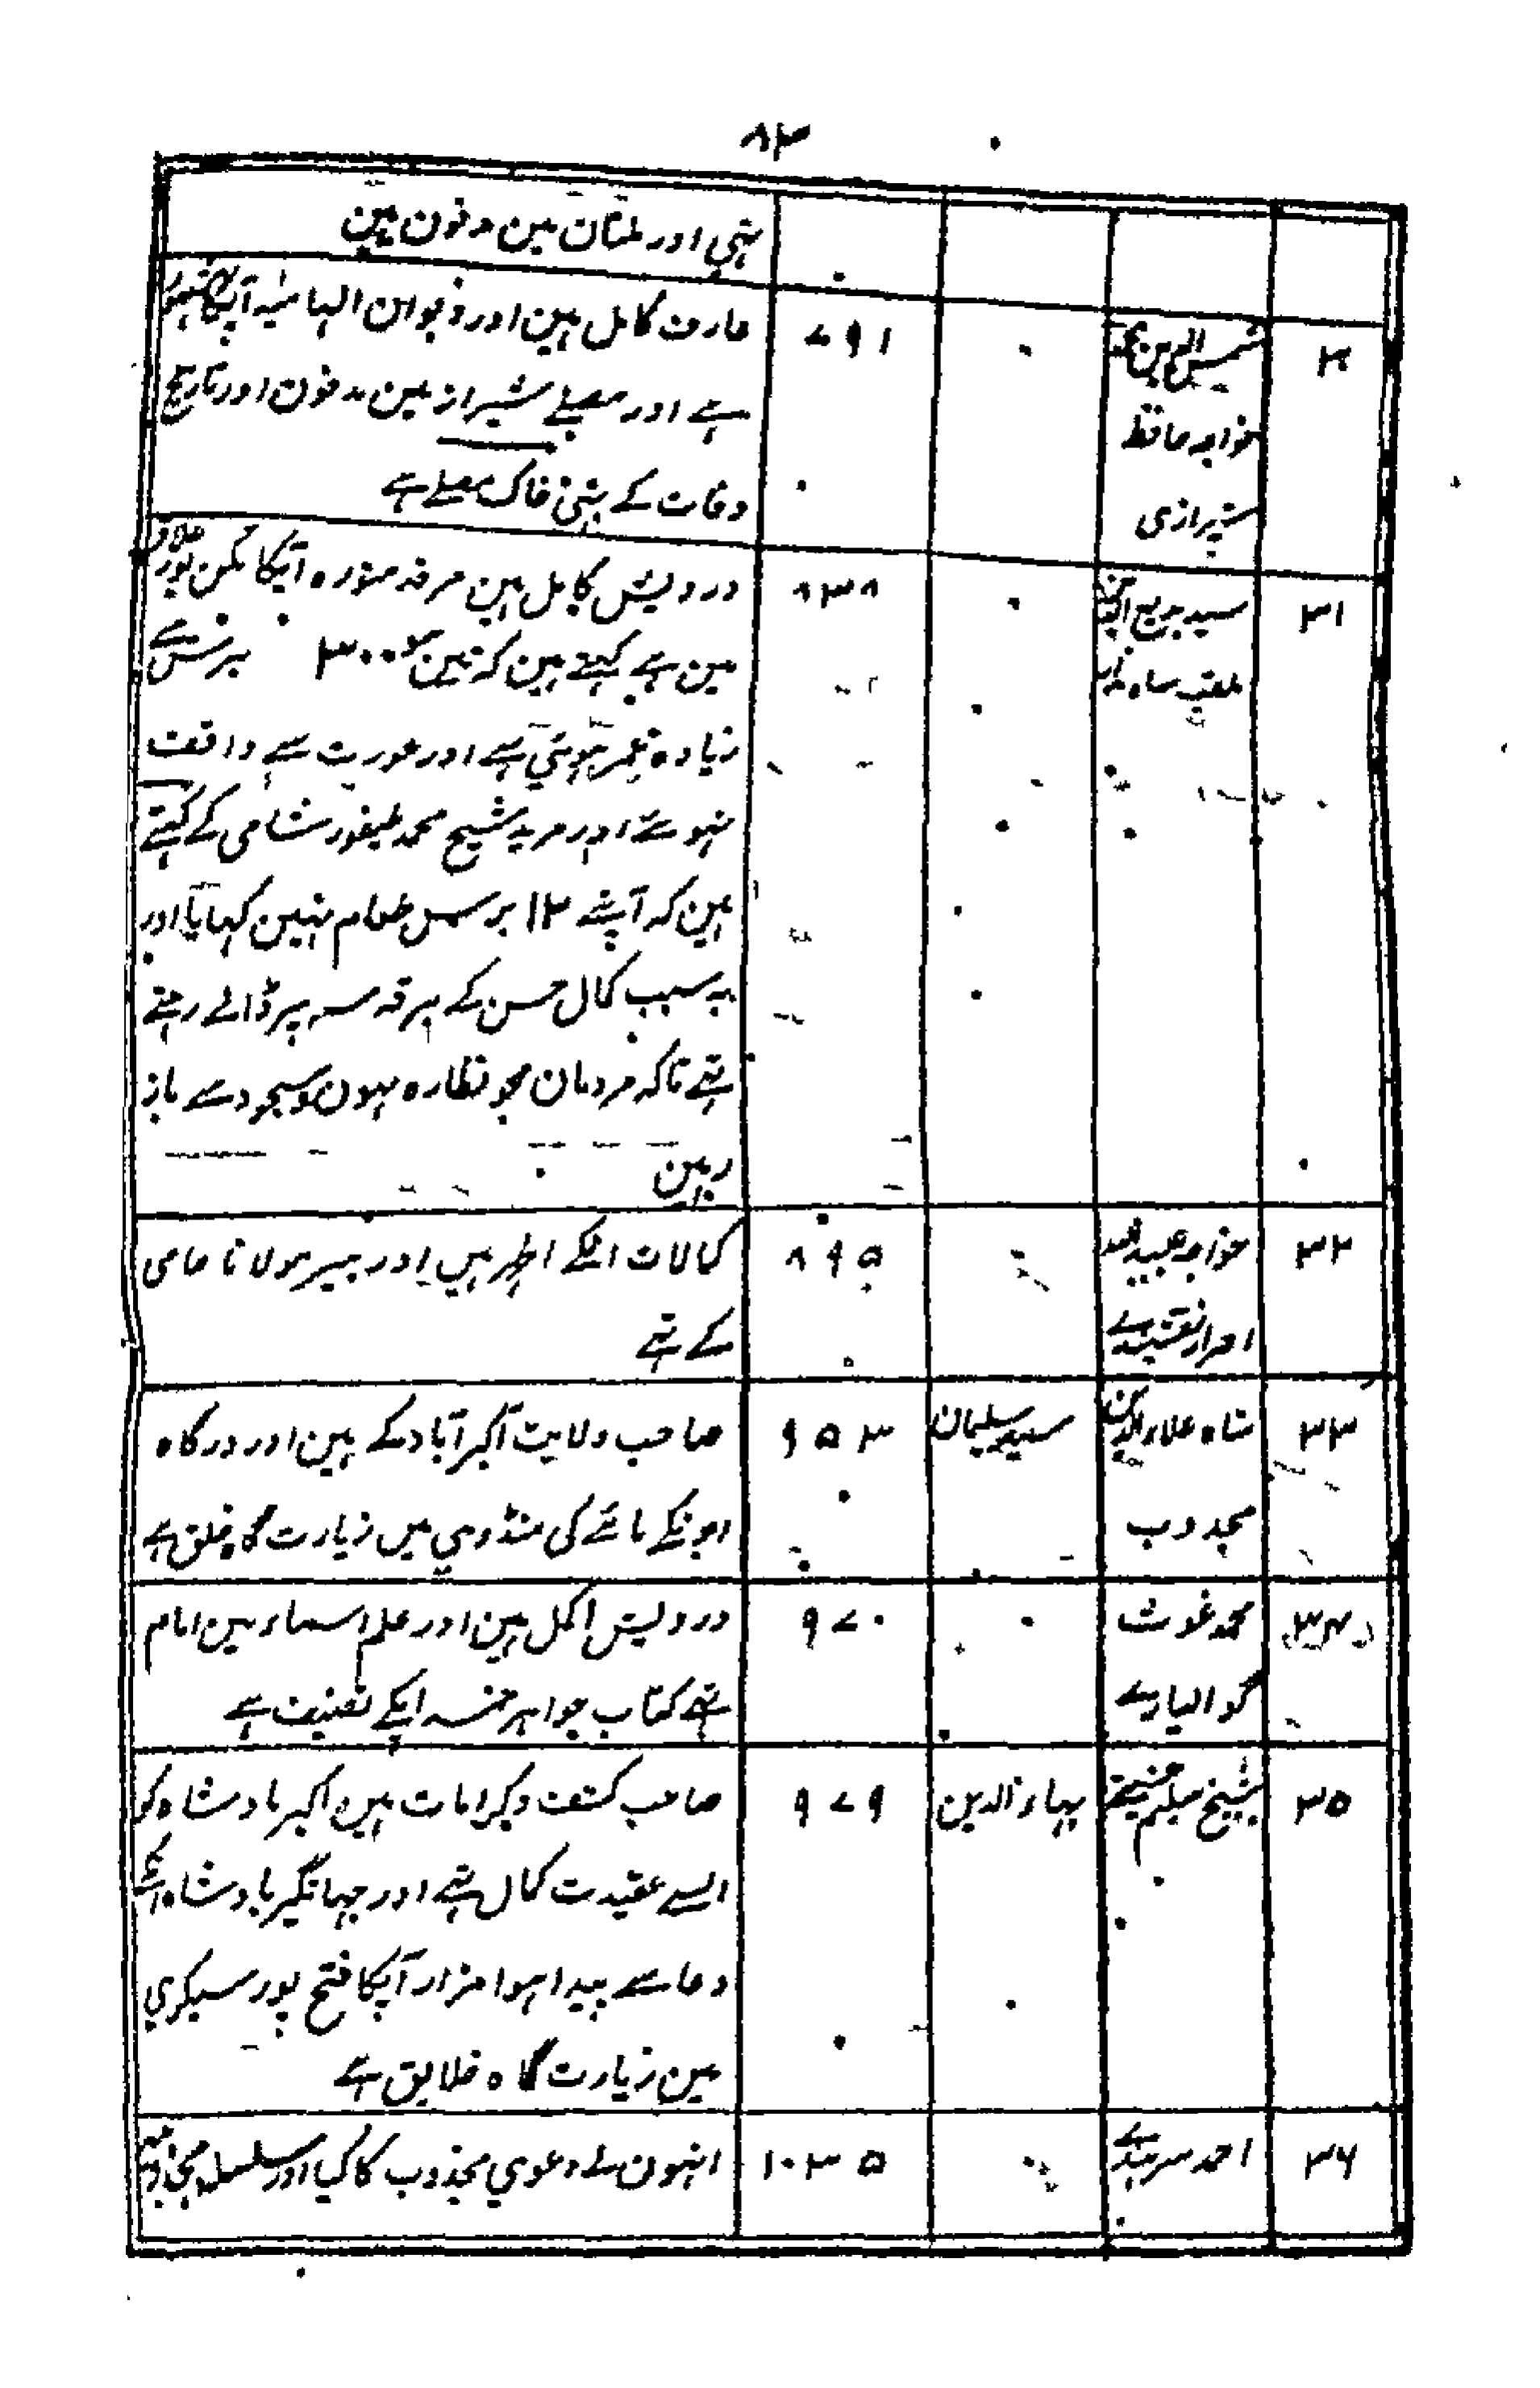 ۸۳
تہی اور ملتان مین مدفون ہین
۳۰
شمس الدین محمد
خواجہ حافظ
شیرازی
۷۹۱
عارف کامل ہین اور دیوان الہامیہ آپکا مشہور
ہے اور مصلے شیراز مین مدفون اور تاریخ
وفات کے بہی خاک مصلے ہے
۳۱
سید بدیع الدین
ملقب شاہ مدار
۸۳۸
درویش کامل ہین مرقد منورہ آپکا مکن پور علاقہ
مین ہے کہتے ہین کہ تین سو ۳۰۰ برس سے
زیادہ عمر ہوئی ہے اور عورت سے واقف
نہوئے اور مرید شیخ محمد طیفور شامی کے کہتے
ہین کہ آپنے ۱۲ برس طعام نہین کہایا اور
بہ سبب کمال حسن کے برقہ منہ پر ڈالے رہتے
تہے تاکہ مردمان محو نظارہ ہون و سجود سے باز
رہین
۳۲
خواجہ عبید اللہ
احرار نقشبندے
۸۹۵
کمالات انکے اظہر ہیں اور پیر مولانا جامی
کے تہے
۳۳
شاہ علاء الدین
مجدوب
سید سلیمان
۹۵۳
صاحب ولایت اکبر آباد کے ہین اور درگاہ
اونکے نائے کی منڈوي میں زیارت گاہ خلق ہے
۳۴
محمد غوث
گوالیارے
۹۷۰
درویش اکمل ہین اور علم اسماء مین امام
تہے کتاب جواہر خمسہ اپکے تصنیف ہے
۳۵
شیخ سلیم چشتے
بہاء الدین
۹۷۹
صاحب کشف و کرامات ہین اکبر بادشاہ کو
ایسے عقیدت کمال تہے اور جہانگیر بادشاہ انکے
دعا سے پیدا ہوا مزار آپکا فتح پور سیکري
مین زیارت گاہ خلایق ہے
۳۶
احمد سرہندے
۱۰۳۵
انہون نے دعوي مجذوب کا کیا اور سلسلہ